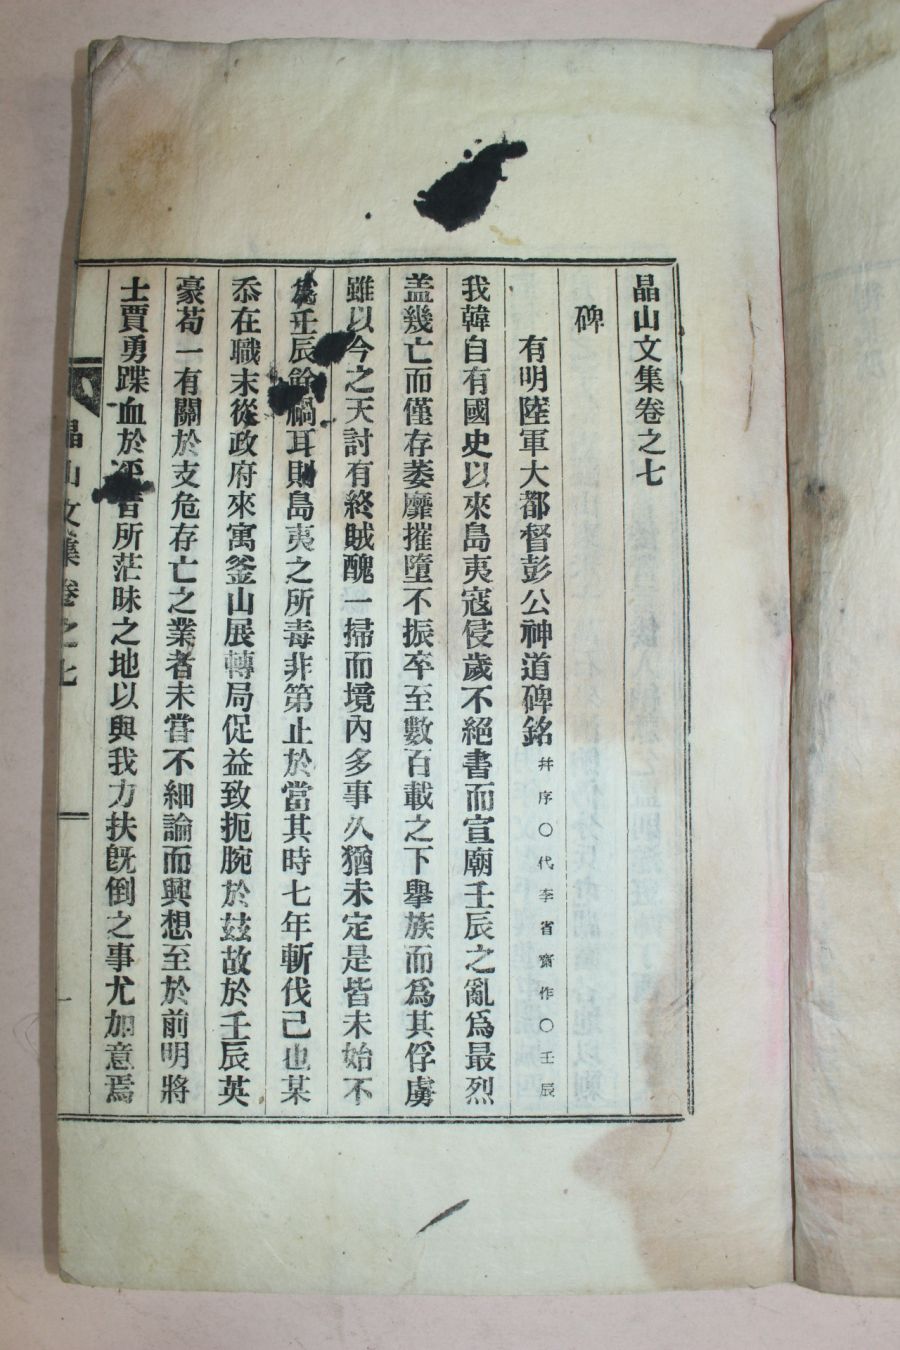 晶山文集卷之七
碑
有明陸軍大都督彭公神道碑銘 幷序○代李省齋作○壬辰
我韓自有國史以來島夷寇侵歲不絕書而宣廟壬辰之亂爲最烈
盖幾亡而僅存萎靡摧墮不振卒至數百載之下擧族而爲其俘虜
雖以今之天討有終賊醜一掃而境內多事久猶未定是皆未始不
爲壬辰餘禍耳則島夷之所毒非第止於當其時七年斬伐已也某
忝在職末從政府來寓釜山展轉局促益致扼腕於玆故於壬辰英
豪苟一有關於支危存亡之業者未嘗不細論而興想至於前明將
士賈勇蹀血於所茫昧之地以與我力扶旣倒之事尤加意焉
晶山文集卷之七
一